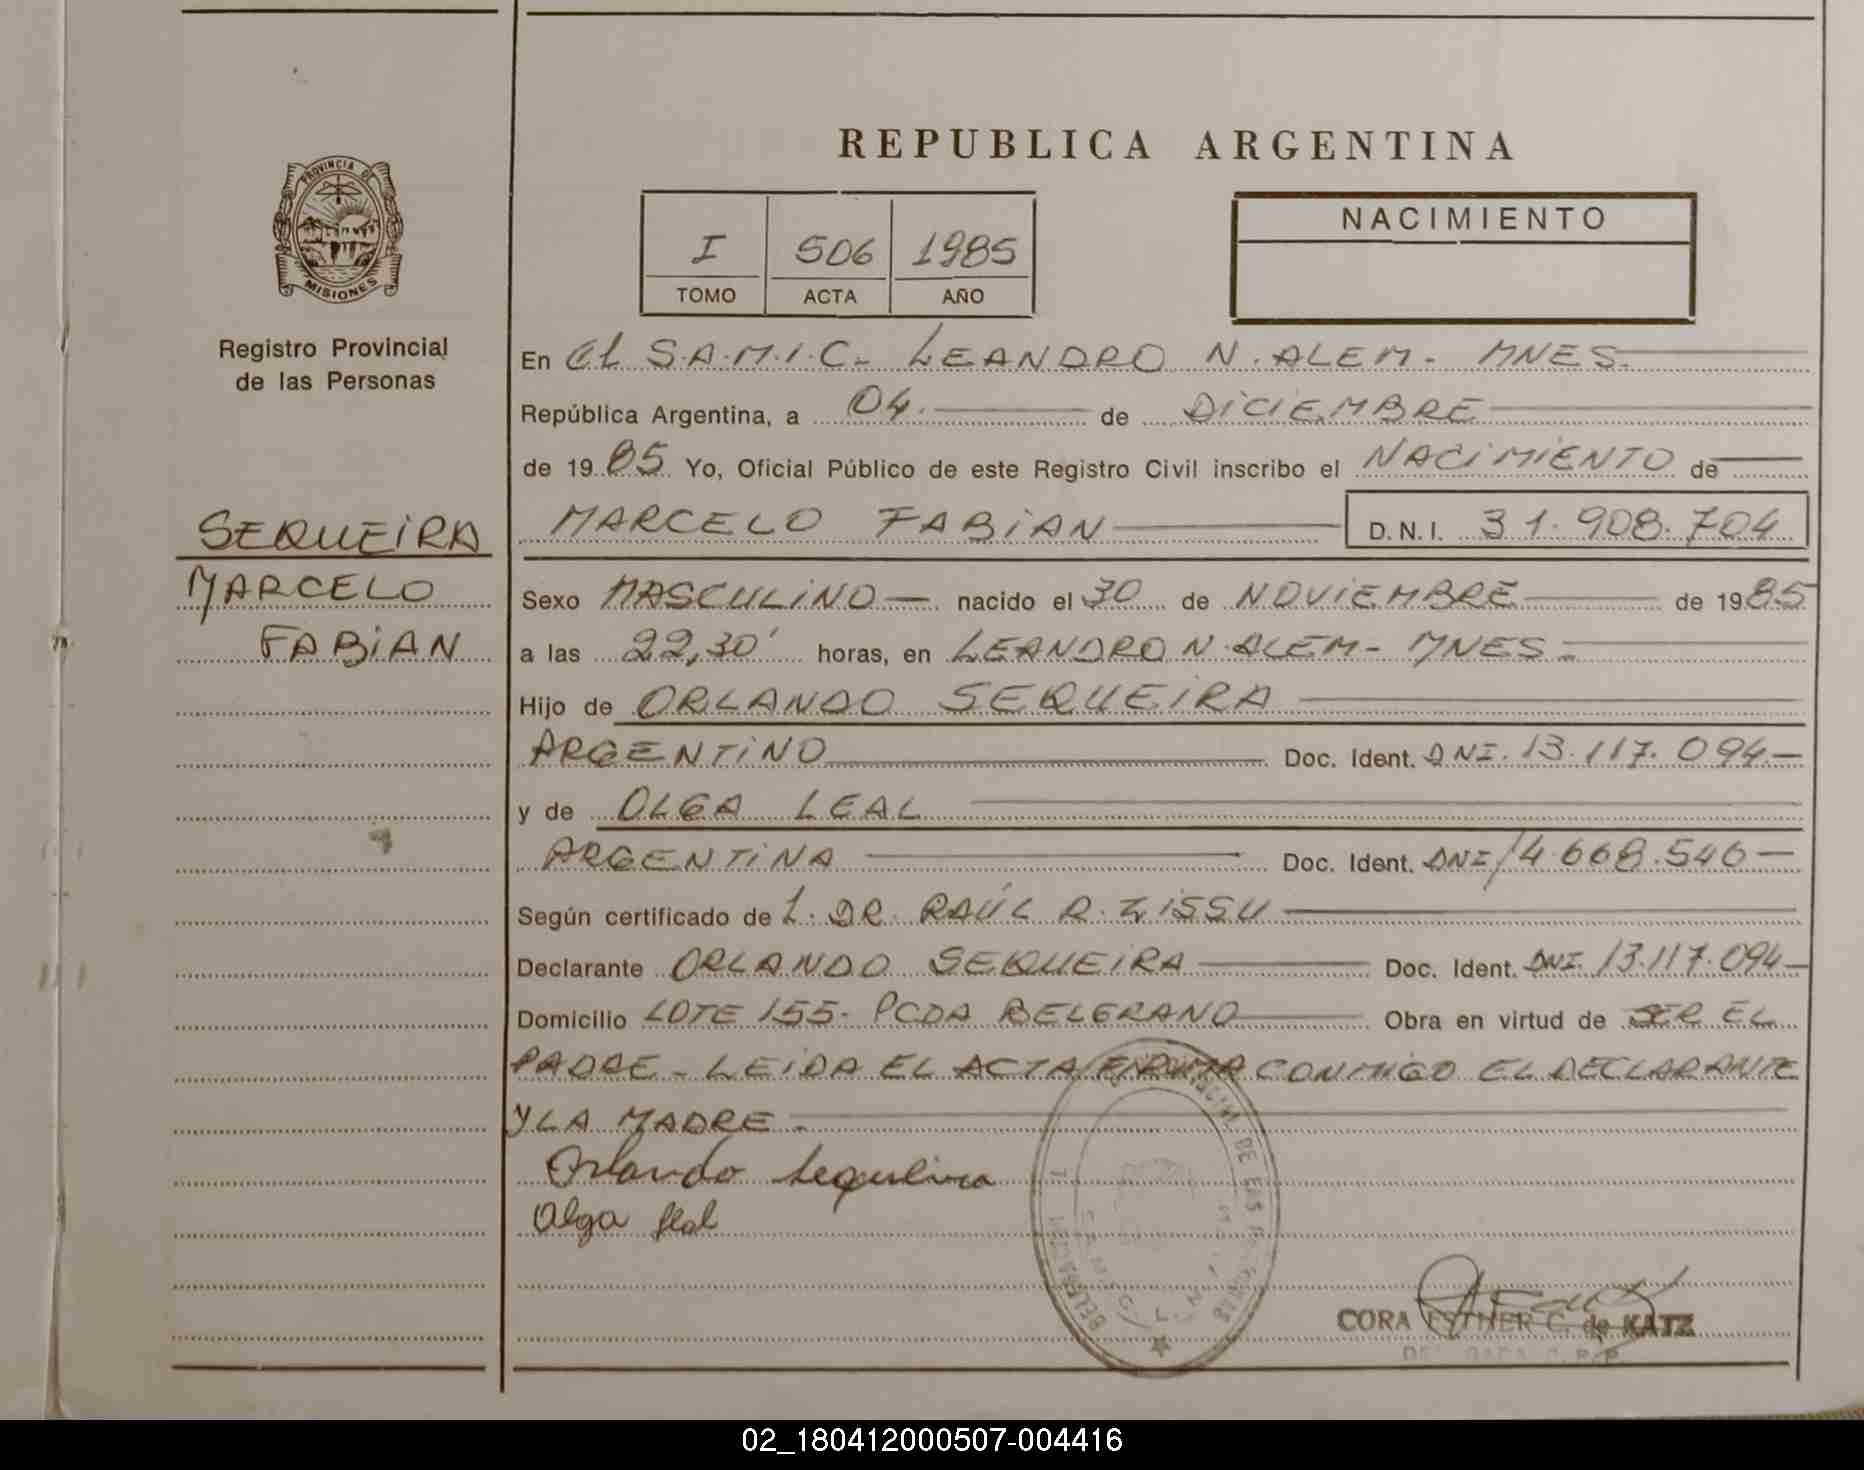 PROVINCIA DE
MISIONES
Registro Provincial
de las Personas
SEQUEIRA
MARCELO
FABIAN
REPUBLICA ARGENTINA
I 506 1985
TOMO ACTA AÑO
NACIMIENTO
En el S.A.M.I.C- LEANDRO N. ALEM- MNES-
República Argentina, a 04. de DICIEMBRE
de 1985 Yo, Oficial Público de este Registro Civil inscribo el NACIMIENTO de
MARCELO FABIAN D.N.I. 31.908.704
Sexo MASCULINO- nacido el 30 de NOVIEMBRE de 1985
a las 22,30' horas, en LEANDRO N. ALEM- MNES-
Hijo de ORLANDO SEQUEIRA
ARGENTINO Doc. Ident. DNI. 13.117.094-
y de OLGA LEAL
ARGENTINA Doc. Ident. DNI 14.668.546-
Según certificado de DR. RAÚL R. ZISSU
Declarante ORLANDO SEQUEIRA Doc. Ident. DNI. 13.117.094-
Domicilio LOTE 155- PCDA BELGRANO Obra en virtud de SER EL
PADRE- LEIDA EL ACTA FIRMA CONMIGO EL DECLARANTE
Y LA MADRE-
Orlando Sequeira
Olga Leal
CORA ESTHER C. de KATZ
02_180412000507-004416